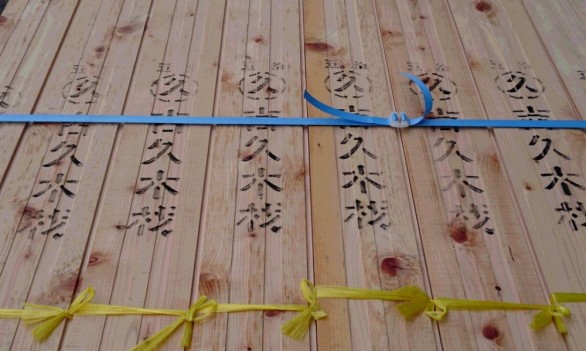 久
吉久木材
久
吉久木材
久
吉久木材
久
吉久木材
久
吉久木材
久
吉久木材